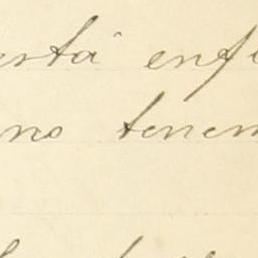 está enf
no tenem